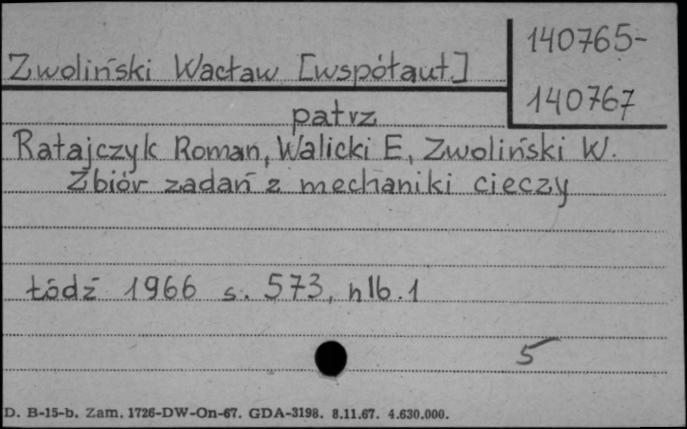 140765-
Zwoliński Wacław [współaut.]
140767
patrz
Ratajczyk Roman, Walicki E., Zwoliński W.
Zbiór zadań z mechaniki cieczy
Łódź 1966 s. 573, nlb. 1
5
D. B-15-b. Zam. 1726-DW-On-67. GDA-3198. 8.11.67. 4.630.000.